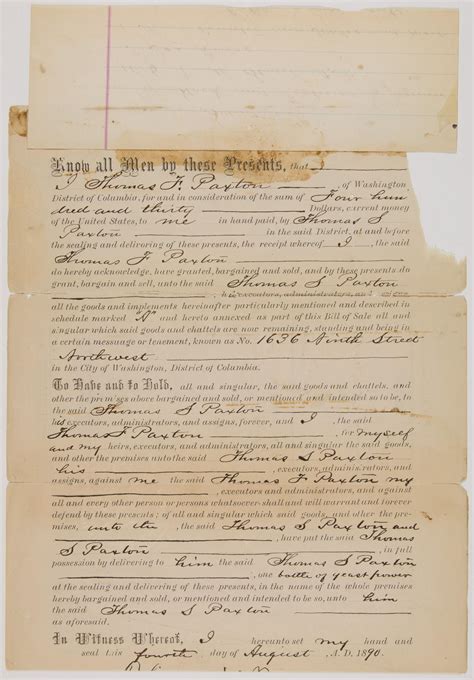 Know all Men by these Presents, that
I Thomas F. Paxton, of Washington,
District of Columbia, for and in consideration of the sum of Four hun
dred and thirty Dollars, current money
of the United States, to me in hand paid, by Thomas S
Paxton in the said District, at and before
the sealing and delivering of these presents, the receipt whereof I, the said
Thomas F Paxton
do hereby acknowledge, have granted, bargained and sold, and by these presents do
grant, bargain and sell, unto the said Thomas S Paxton
his executors, administrators, and assigns
all the goods and implements hereinafter particularly mentioned and described in
schedule marked "A" and hereto annexed as part of this Bill of Sale all and
singular which said goods and chattels are now remaining, standing and being in
a certain messuage or tenement, known as No. 1636 Ninth Street
Northwest
in the City of Washington, District of Columbia.
To Have and to Hold, all and singular, the said goods and chattels, and
other the premises above bargained and sold, or mentioned and intended so to be, to
the said Thomas S Paxton
his executors, administrators, and assigns, forever, and I the said
Thomas F Paxton, for myself
and my heirs, executors, and administrators, all and singular the said goods,
and other the premises unto the said Thomas S Paxton
his, executors, administrators, and
assigns, against me the said Thomas F Paxton my
executors and administrators, and against
all and every other person or persons whatsoever shall and will warrant and forever
defend by these presents; of all and singular which said goods, and other the pre-
mises, unto the, the said Thomas S Paxton and
, have put the said Thomas
S Paxton, in full
possession by delivering to him the said Thomas S Paxton
, one bottle of yeast power
at the sealing and delivering of these presents, in the name of the whole premises
hereby bargained and sold, or mentioned and intended to be so, unto him
the said Thomas S Paxton
as aforesaid.
In Witness Whereof, I hereunto set my hand and
seal this fourth day of August A.D. 1890.